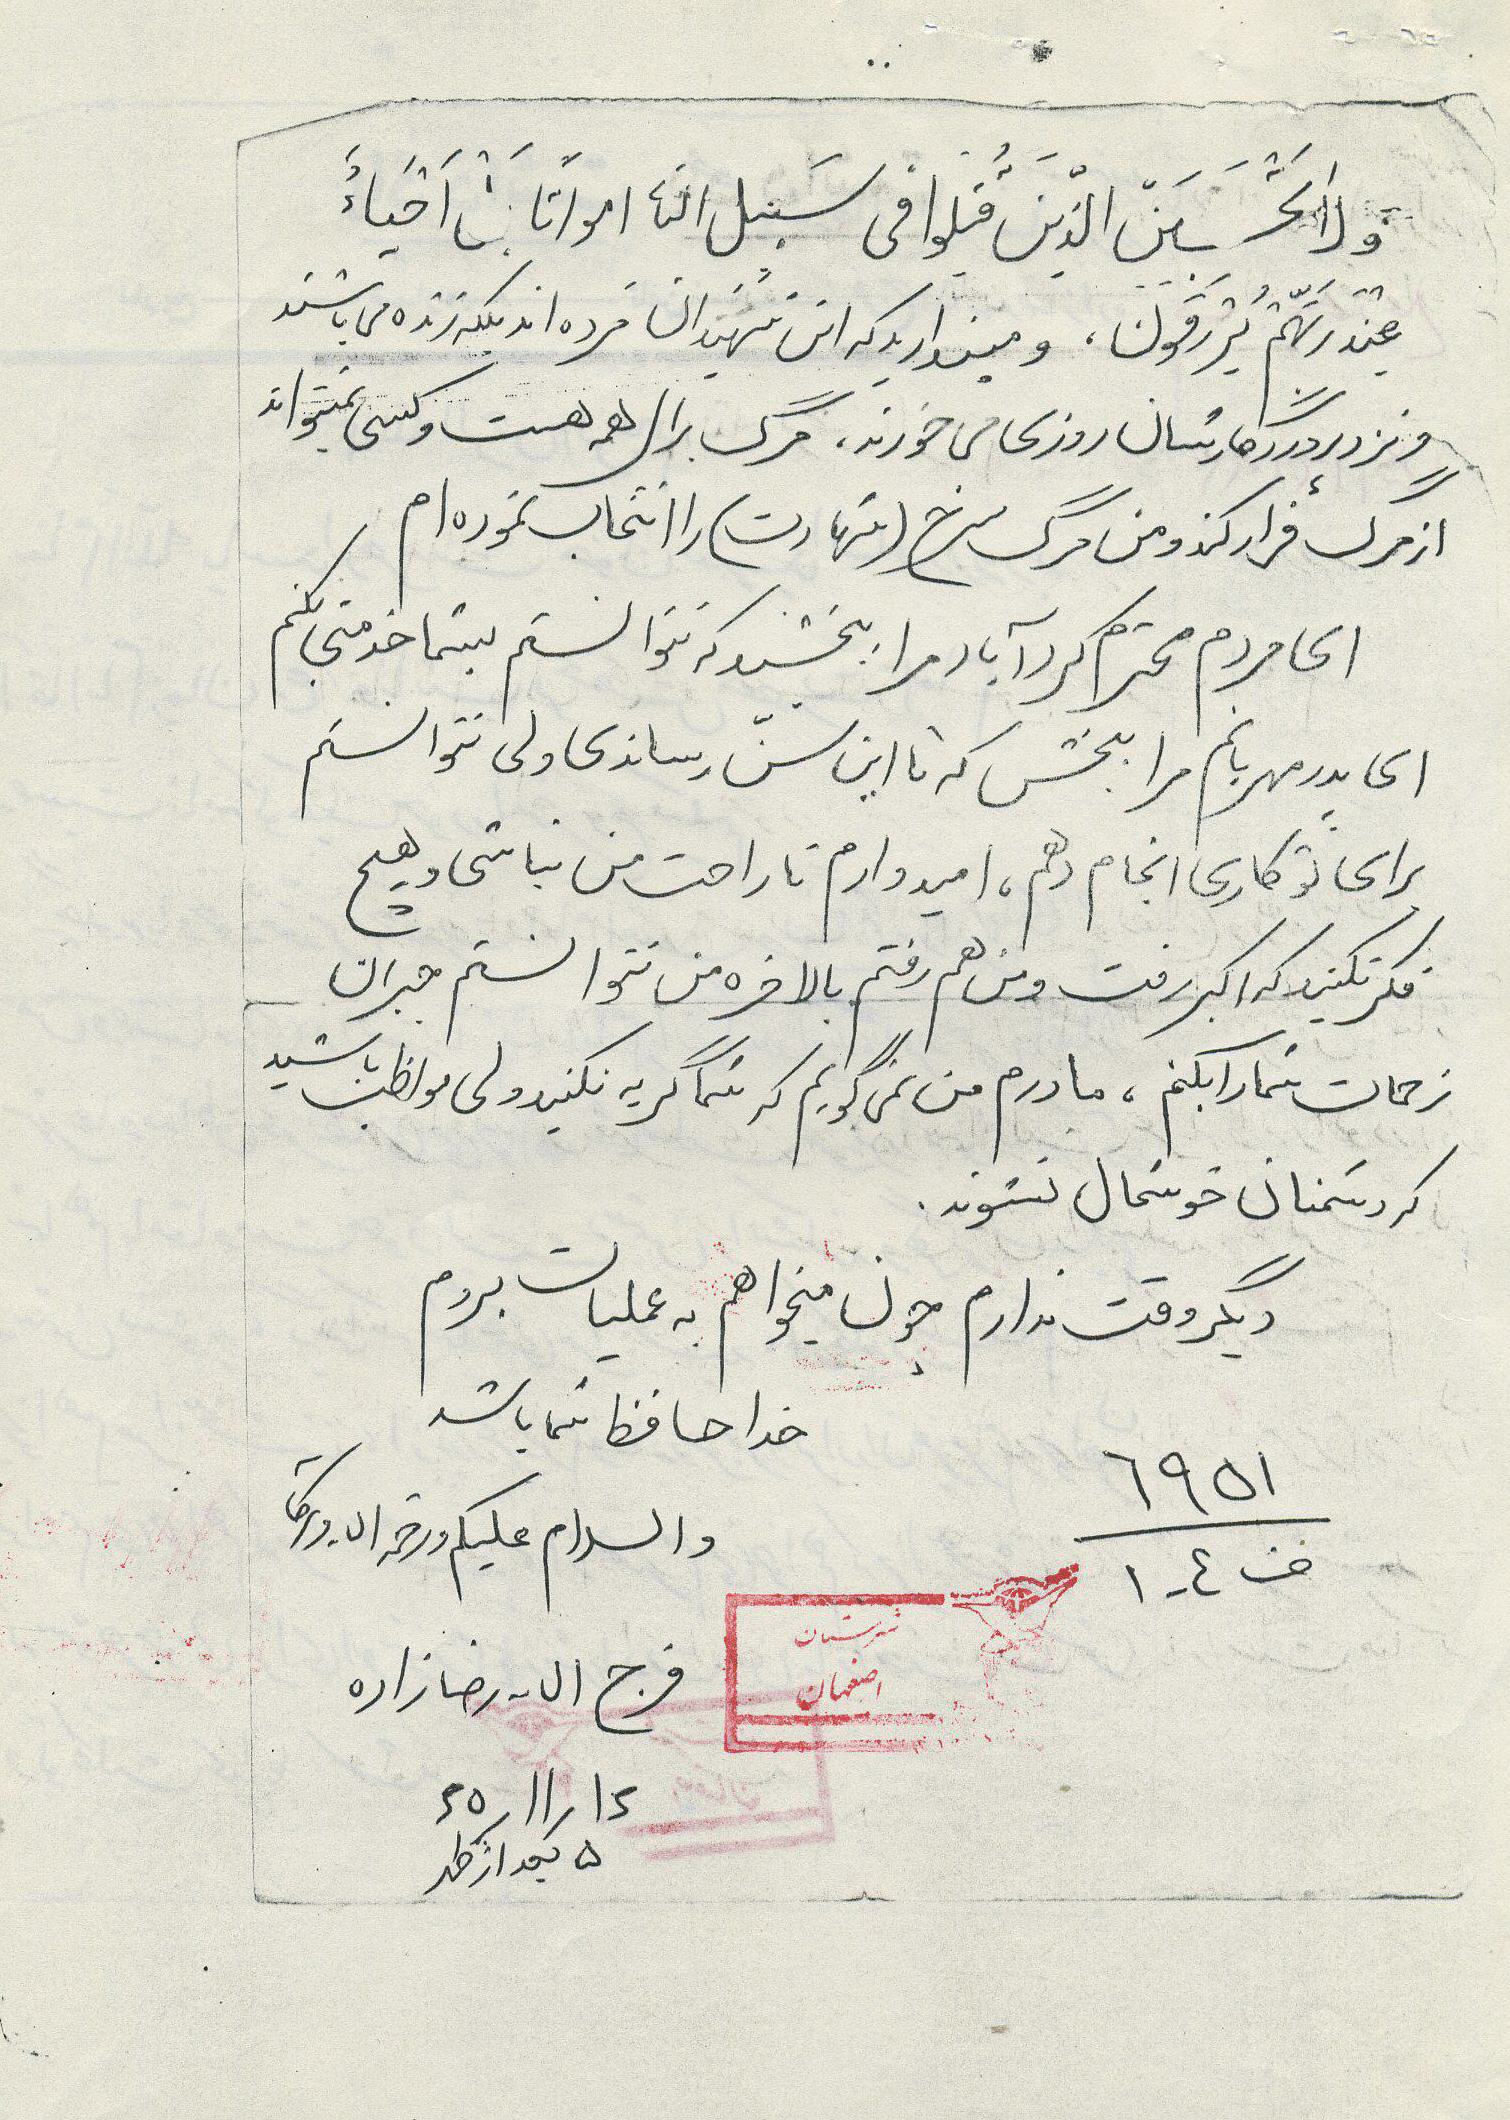 وَلا تَحْسَبَنَّ الَّذینَ قُتِلوا فی سَبیلِ اللهِ امواتًا بَلْ اَحْیاءٌ
عِنْدَ رَبِّهِمْ یُرْزَقُونَ، و مپندارید که این شهیدان مرده اند بلکه زنده می باشند
و نزد پروردگارشان روزی می خورند، مرگ برای همه هست و کسی نمیتواند
از مرگ فرار کند و من مرگ سرخ (شهادت) را انتخاب نموده ام
ای مردم محترم کردآباد مرا ببخشید که نتوانستم بشما خدمتی بکنم
ای پدر مهربانم مرا ببخش که تا این سنّ رساندی ولی نتوانستم
برای تو کاری انجام دهم، امیدوارم ناراحت من نباشی و هیچ
فکر نکنید که اکبر رفت و من هم رفتم بالاخره من نتوانستم جبران
زحمات شما را بکنم، مادرم من نمی گویم که شما گریه نکنید ولی مواظب باشید
که دشمنان خوشحال نشوند.
دیگر وقت ندارم چون میخواهم به عملیات بروم
خدا حافظ شما باشد
والسلام علیکم ورحمه اله وبرکاته
٦٩٥١
ف ٤-١
شهرستان
اصفهان
فرج اله رضازاده
۱۲ر۱۱ر۶۵
۵ بعد از ظهر